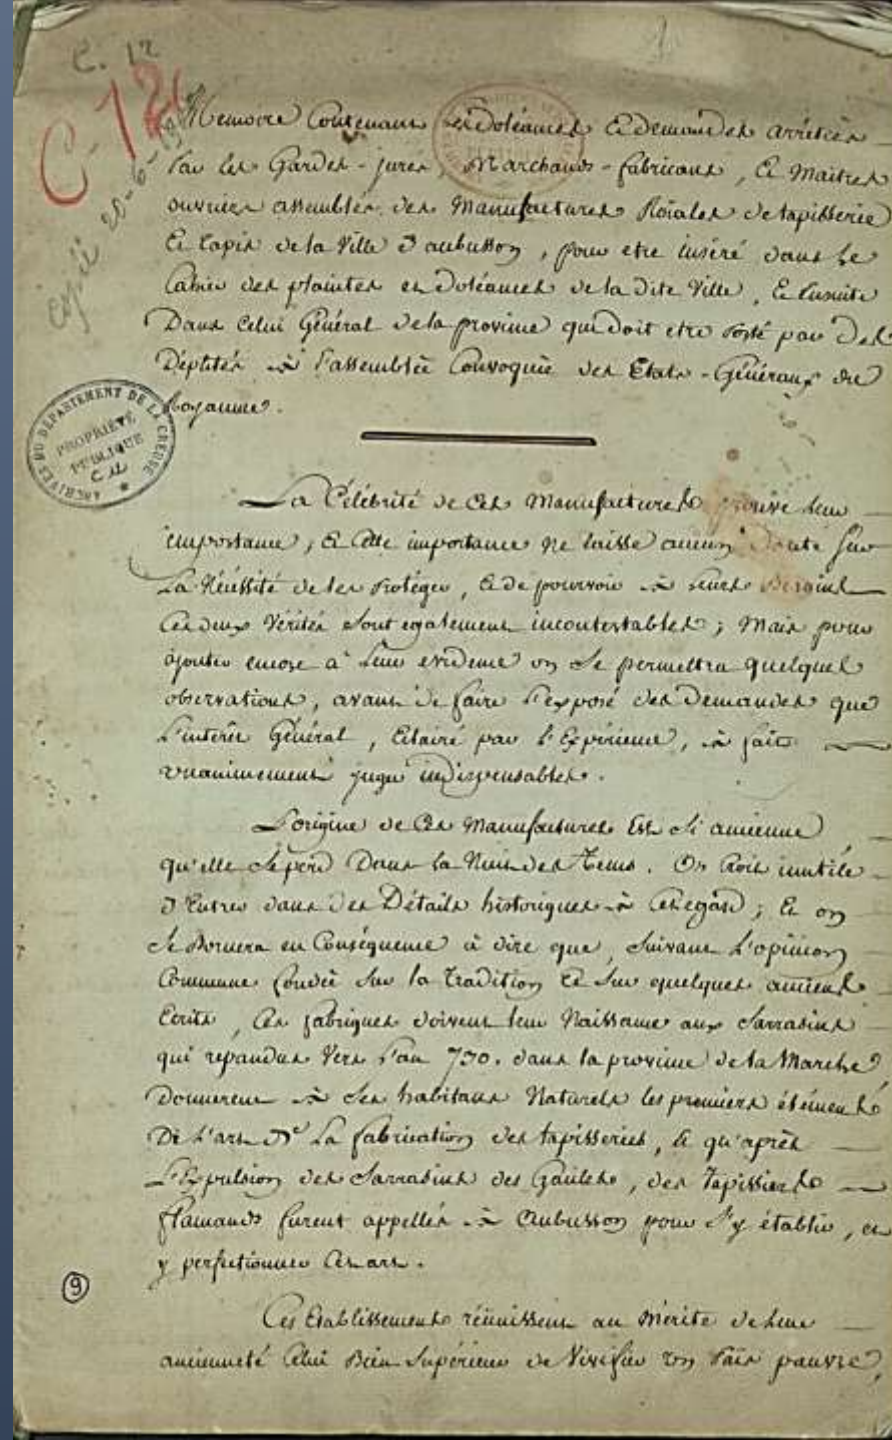 C. 12
C-12
1
copié 20-6-
Memoire Contenant les doléances & demandes arrêtées
Par les Gardes-jurés, Marchands-fabricans, & Maitres
ouvriers assemblés des Manufactures Roiales de tapisserie
& tapis de la Ville d'aubusson, pour etre inséré dans le
Cahier des plaintes et doléances de la dite Ville, & Ensuite
Dans Celui Général de la province qui doit etre Porté par Des
Députés à l'assemblée Convoquée des Etats-Généraux du
Royaume.
ARCHIVES DU DÉPARTEMENT DE LA CREUSE
PROPRIÉTÉ
PUBLIQUE
La Célébrité de Ces Manufactures prouve leur
importance, & Cette importance ne laisse aucun doute sur
La Nécessité de les Protéger, & de pourvoir à leurs Besoins
Ces deux Vérités sont egalement incontestables; Mais pour
ajouter encore à leur evidence on Se permettra quelques
observations, avant de faire l'exposé des Demandes que
L'intérêt Général, Eclairé par l'Expérience, à fait
unanimement juger indispensables.
L'origine de Ces Manufactures Est Si ancienne
qu'elle Se perd Dans la Nuit des Tems. On Croit inutile
D'Entrer dans des Détails historiques à Cet egard; & on
Se Bornera en Conséquence à dire que, Suivant L'opinion
Commune fondée Sur la Tradition & Sur quelques anciens
Ecrits, Ces fabriques doivent leur Naissance aux Sarrasins
qui repandus Vers l'an 730. dans la province de la Marche
Donnerent à Ses habitans Naturels les premiers éléments
De L'art De La fabrication des tapisseries, & qu'après
L'Expulsion des Sarrasins des Gaules, des Tapissiers
flamands furent appellés à Aubusson pour S'y établir, et
y perfectionner Cet art.
9
Ces Etablissements réunissent au Mérite de leur
ancienneté Celui Bien Supérieur de Vivifier un Païs pauvre,